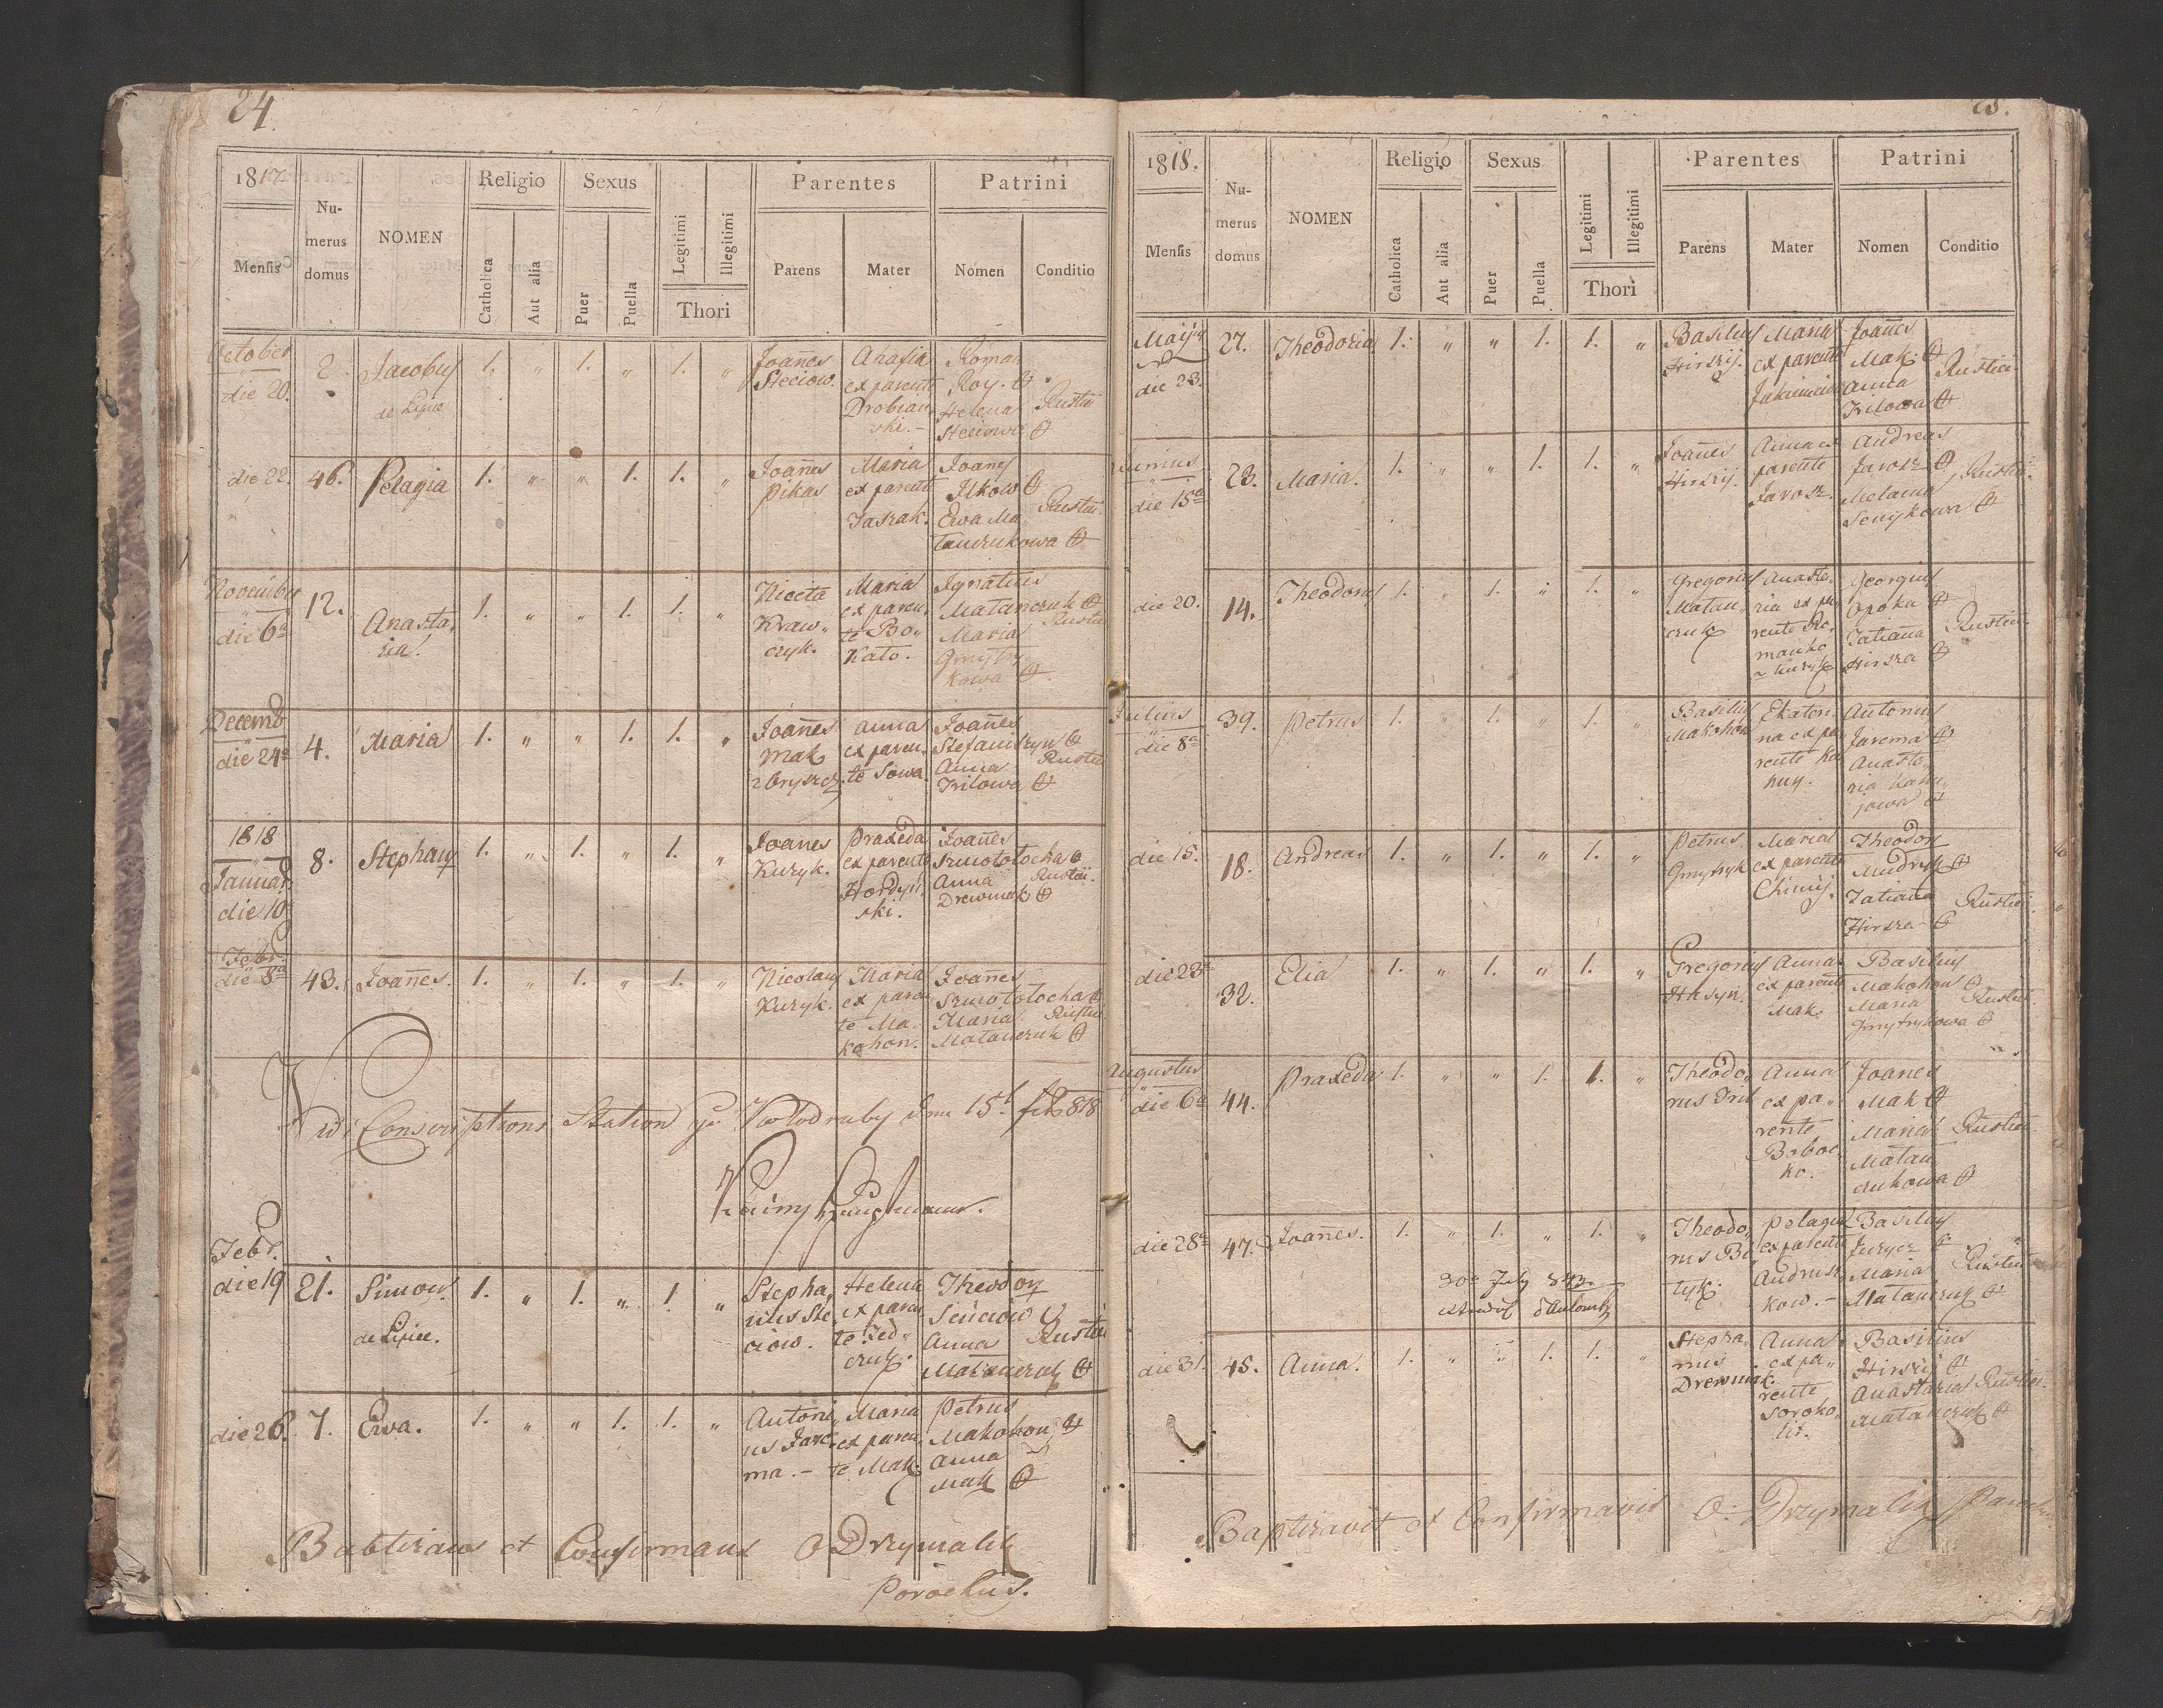 24.
1817.
Mensis
Nu-
merus
domus
NOMEN
Religio
Catholica
Aut alia
Sexus
Puer
Puella
Legitimi
Illegitimi
Thori
Parentes
Parens
Mater
Patrini
Nomen
Conditio
October
die 20.
2.
Jacobus
de Lipie
1. „ 1. „ 1. „
Joanes
Steciow.
Anafia
ex parente
Drobian
ski.-
Roman
Roy.
Helena
Steciowa
Rustici
die 22.
46.
Pelagia
1. „ „ 1. 1. „
Joañes
Pikas
Maria
ex parente
Jaszak.
Joanes
Ilkow
Ewa Ma
tanczukowa
Rustici
November
die 6a
12.
Anasta,
zia.
1. „ „ 1. 1. „
Niceta
Kraw„
czyk.
Maria
ex paren,
te Bo„
kato.
Ignatius
Matanczuk
Maria
Gmytry
kowa
Rustici
Decemb
die 24a
4.
Maria
1. „ „ 1. 1. „
Joañes
Mak
z Gryszcz.
Anna
ex paren,
te Sowa.
Joañes
Stefanczyn
Anna
Trilowa
Rustici
1818
Januar
die 10
8.
Stephanus
1. „ 1. „ 1. „
Joanes
Kuzyk.
Praxeda
ex parente
Hordyn
ski.
Joañes
Szmototocha
Anna
Drewniak
Rustici.
Febr.
die 8a
43.
Joañes.
1. „ 1. „ 1. „
Nicolaus
Kuzyk.
Maria
ex paren
te Ma.
kohon.
Joañes
Szmototocha
Maria
Matanczuk
Rustici
Vidi Conscriptions Station zu Kolodruby 15t feb 818
Febr.
die 19
21.
Simon.
de Lipice.
1. „ 1. „ 1. „
Stepha„
nus Ste
ciow.
Helena
ex paren
te Fed„
czuk.
Theodor
Senciow
Anna
Matanczuk
Rustici
die 26.
7.
Ewa.
1. „ „ 1. 1. „
Antoni„
us Jare
ma.-
Maria
ex paren„
te Mak
Petrus
Makohon
Anna
Mak
Babtizans et Confirmans O Drzymalik
Parochus.
25.
1818.
Mensis
Nu-
merus
domus
NOMEN
Religio
Catholica
Aut alia
Sexus
Puer
Puella
Legitimi
Illegitimi
Thori
Parentes
Parens
Mater
Patrini
Nomen
Conditio
Maijus
die 23.
27.
Theodozia
1. „ „ 1. 1. „
Basilius
Hirszij.
Maria
ex parente
Joañes
Mak
Anna
Trilowa
Rustici
Junius
die 15a
23.
Maria.
1. „ „ 1. 1. „
Joañes
Hirszij.
Anna ex
parente
Jarosz.
Andreas
Jarosz
Melania
Senykowa
Rustici
die 20.
14.
Theodorus
1. „ 1. „ 1. „
Gregorius
Matan„
czuk
Anasta.
zia ex pa„
rente Ro„
manko
z Kuzyk
Georgius
Opoka
Tatiaña
Hirsza
Rustici
Julius
die 8a
39.
Petrus
1. „ 1. „ 1. „
Basilius
Makohon
Ekateri
na ex pa
rente Ka
nuy.
Antonius
Jarema
Anasta
zia Kanu„
jowa
die 15.
18.
Andreas
1. „ 1. „ 1. „
Petrus
Gmytryk
Maria
ex parente
Chimij.
Theodor
Mudryk
Tatiana
Hirsza
Rustici
die 23a
32.
Elia
1. „ 1. „ 1. „
Gregorius
Hasyn.
Anna
ex parente
Mak
Basilius
Makohon
Maria
Gmytrykowa
Rustici
Augustus
die 6a
44.
Praxeda
1. „ „ 1. 1. „
Theodo„
rus Tril
Anna
ex pa„
rente
Boboc
ko.
Joanes
Mak
Maria
Matan
czukowa
Rustici
die 28a
47.
Joañes.
1. „ 1. „ 1. „
Theodo„
rus Bi„
tyk.
Pelagia
ex parente
Andrusz
kow.-
Basilius
Jurycz
Maria
Matanczuk
Rustici
30a July 843
die 31.
45.
Anna.
1. „ „ 1. 1. „
Stepha„
nus
Drewniak.
Anna
ex pa„
rente
Soroko
lit.
Basilius
Hirszij
Anastazia
Matanczuk
Rustici
Baptizavit et Confirmavit O: Drzymalik Paroch